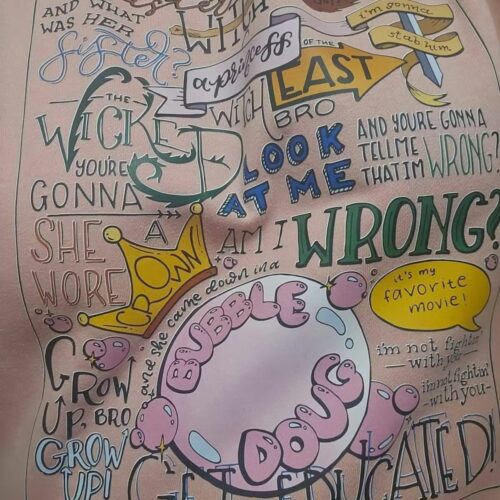 AND WHAT
WAS HER
Sister?
WITCH
a princess
i'm gonna
stab him
OF THE
EAST
WITCH BRO
THE
WICKED
LOOK
AT ME
AND YOU'RE GONNA
TELL ME
THAT I'M WRONG?
YOU'RE
GONNA
AM I
WRONG?
SHE
WORE
A
CROWN
and she came down in a
BUBBLE
DOUG
it's my
favorite
movie!
i'm not fightin'
with you
i'm not fightin'
-with you-
GROW
UP, BRO
GROW
UP!
GET EDUCATED!